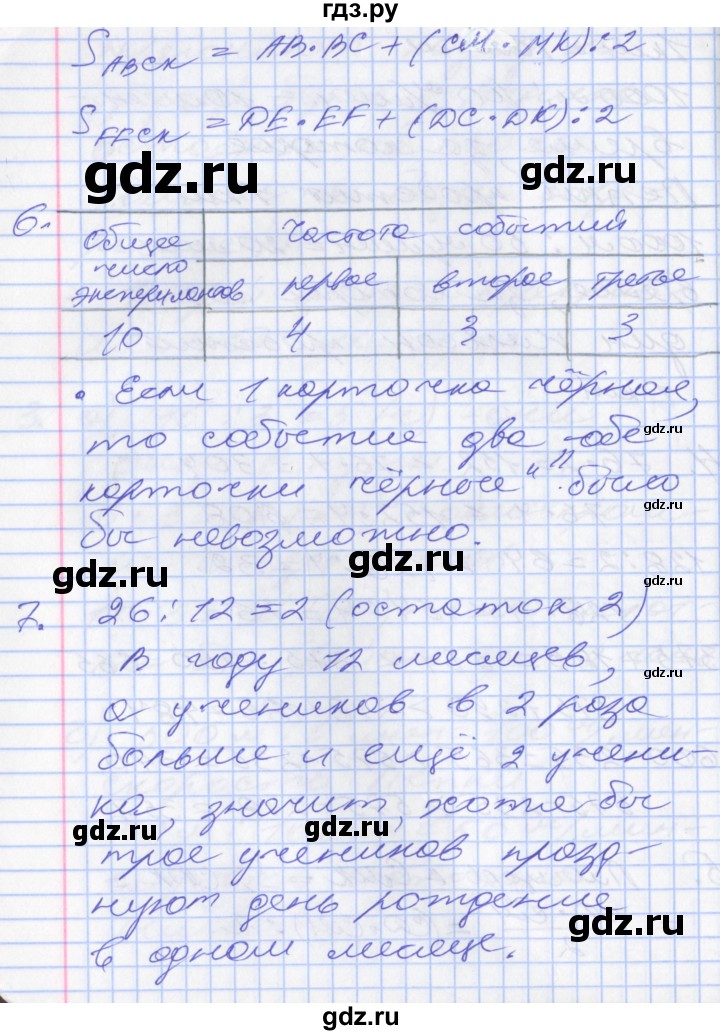 гдз.ру
S ABCK = AB·BC + (CM·MK):2
S FECK = DE·EF + (DC·DK):2
gdz.ru
gdz.ru
6. Общее число экспериментов
Частота событий
первое второе третье
10 4 3 3
gdz.ru
gdz.ru
• Если 1 карточка чёрная,
то событие два „обе
карточки чёрные" было
бы невозможно.
gdz.ru
gdz.ru
gdz.ru
7. 26:12=2 (остаток 2)
В году 12 месяцев,
а учеников в 2 раза
больше и ещё 2 учени-
ка, значит, хотя бы
трое учеников празд-
нуют день рождение
в одном месяце.
gdz.ru
gdz.ru
gdz.ru
gdz.ru
gdz.ru
gdz.ru